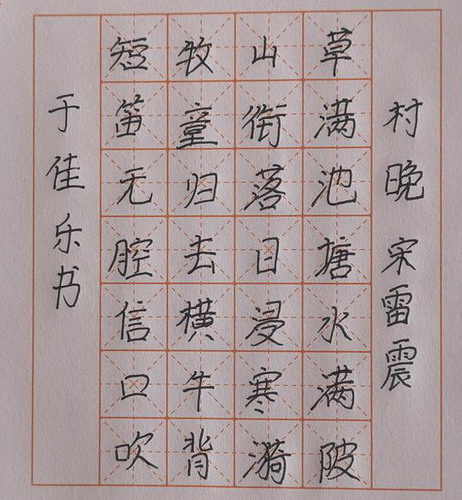 村晚 宋雷震
草满池塘水满陂
山衔落日浸寒漪
牧童归去横牛背
短笛无腔信口吹
于佳乐书